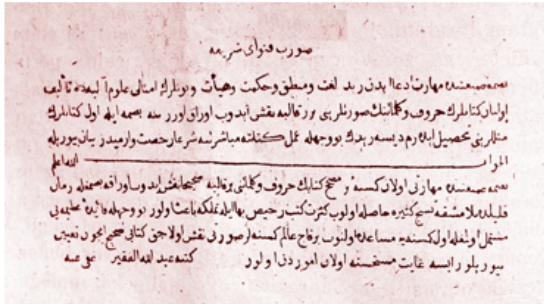 صورت فتواى شريفه
بصمه صنعتنده مهارت ادعا ايدن زيد لغت ومنطق وحكمت وهيأت وبونلرك امثالى علوم آليه ده تأليف
اولنان كتابلرك حروف وكلماتنك صورتلرينى بر قالبه نقش ايدوب اوراق اوزرينه بصمه ايله اول كتابلرك
مثللرينى تحصيل ايدرم ديسه زيدك بو وجهله عمل كتابته مباشرتنه شرعا رخصت وارميدر بيان بيوريله
الجواب الله اعلم
بصمه صنعتنده مهارتى اولان كمسنه بر مصحح كتابك حروف وكلماتنى بر قالبه صحيحا نقش ايدوب اوراقه بصمغله زمان
قليلده بلا مشقة نسخ كثيره حاصله اولوب كثرت كتب رخيص بها ايله تملكه باعث اولور بو وجهله فائدۀ عظيمه يى
مشتمل اولمغله اول كمسنه يه مساعده اولنوب برقاچ عالم كمسنه لر صورتى نقش اولنه جق كتابى تصحيح ايچون تعيين
بيوريلور ايسه غايت مستحسنه اولان اموردن اولور كتبه عبد الله الفقير عفى عنه